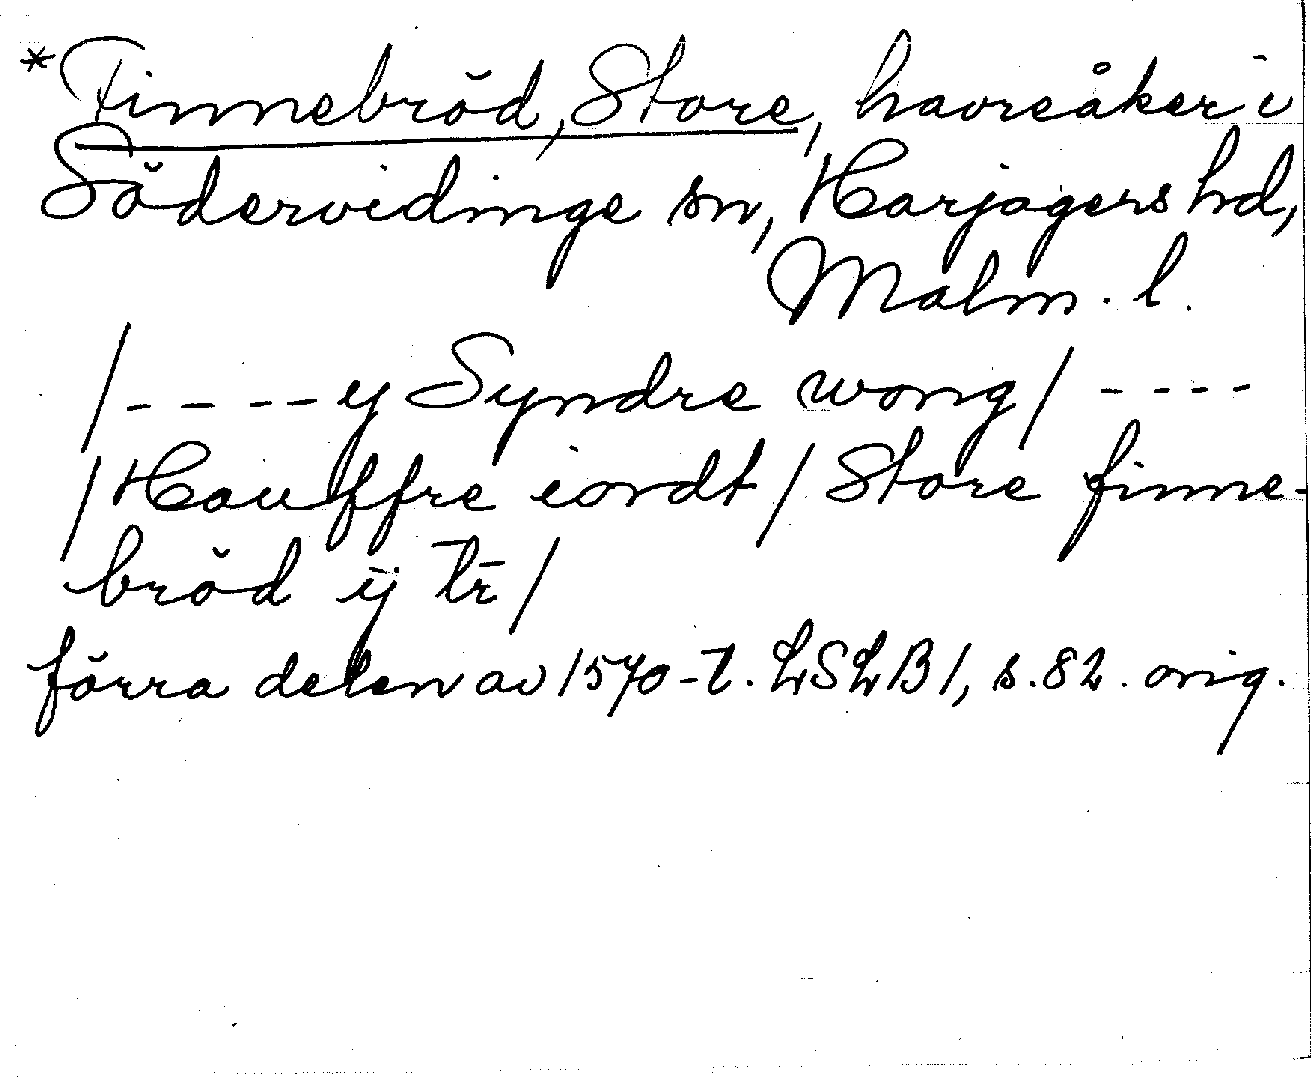 *Finnebröd, Store, havreåker i
Södervidinge sn, Harjagers hd,
Malm. l.
/----y Syndre wong/----
/Hauffre iordt/Store finne-
bröd ij tr̄/
förra delen av 1570-t. LSLB1, s. 82. orig.